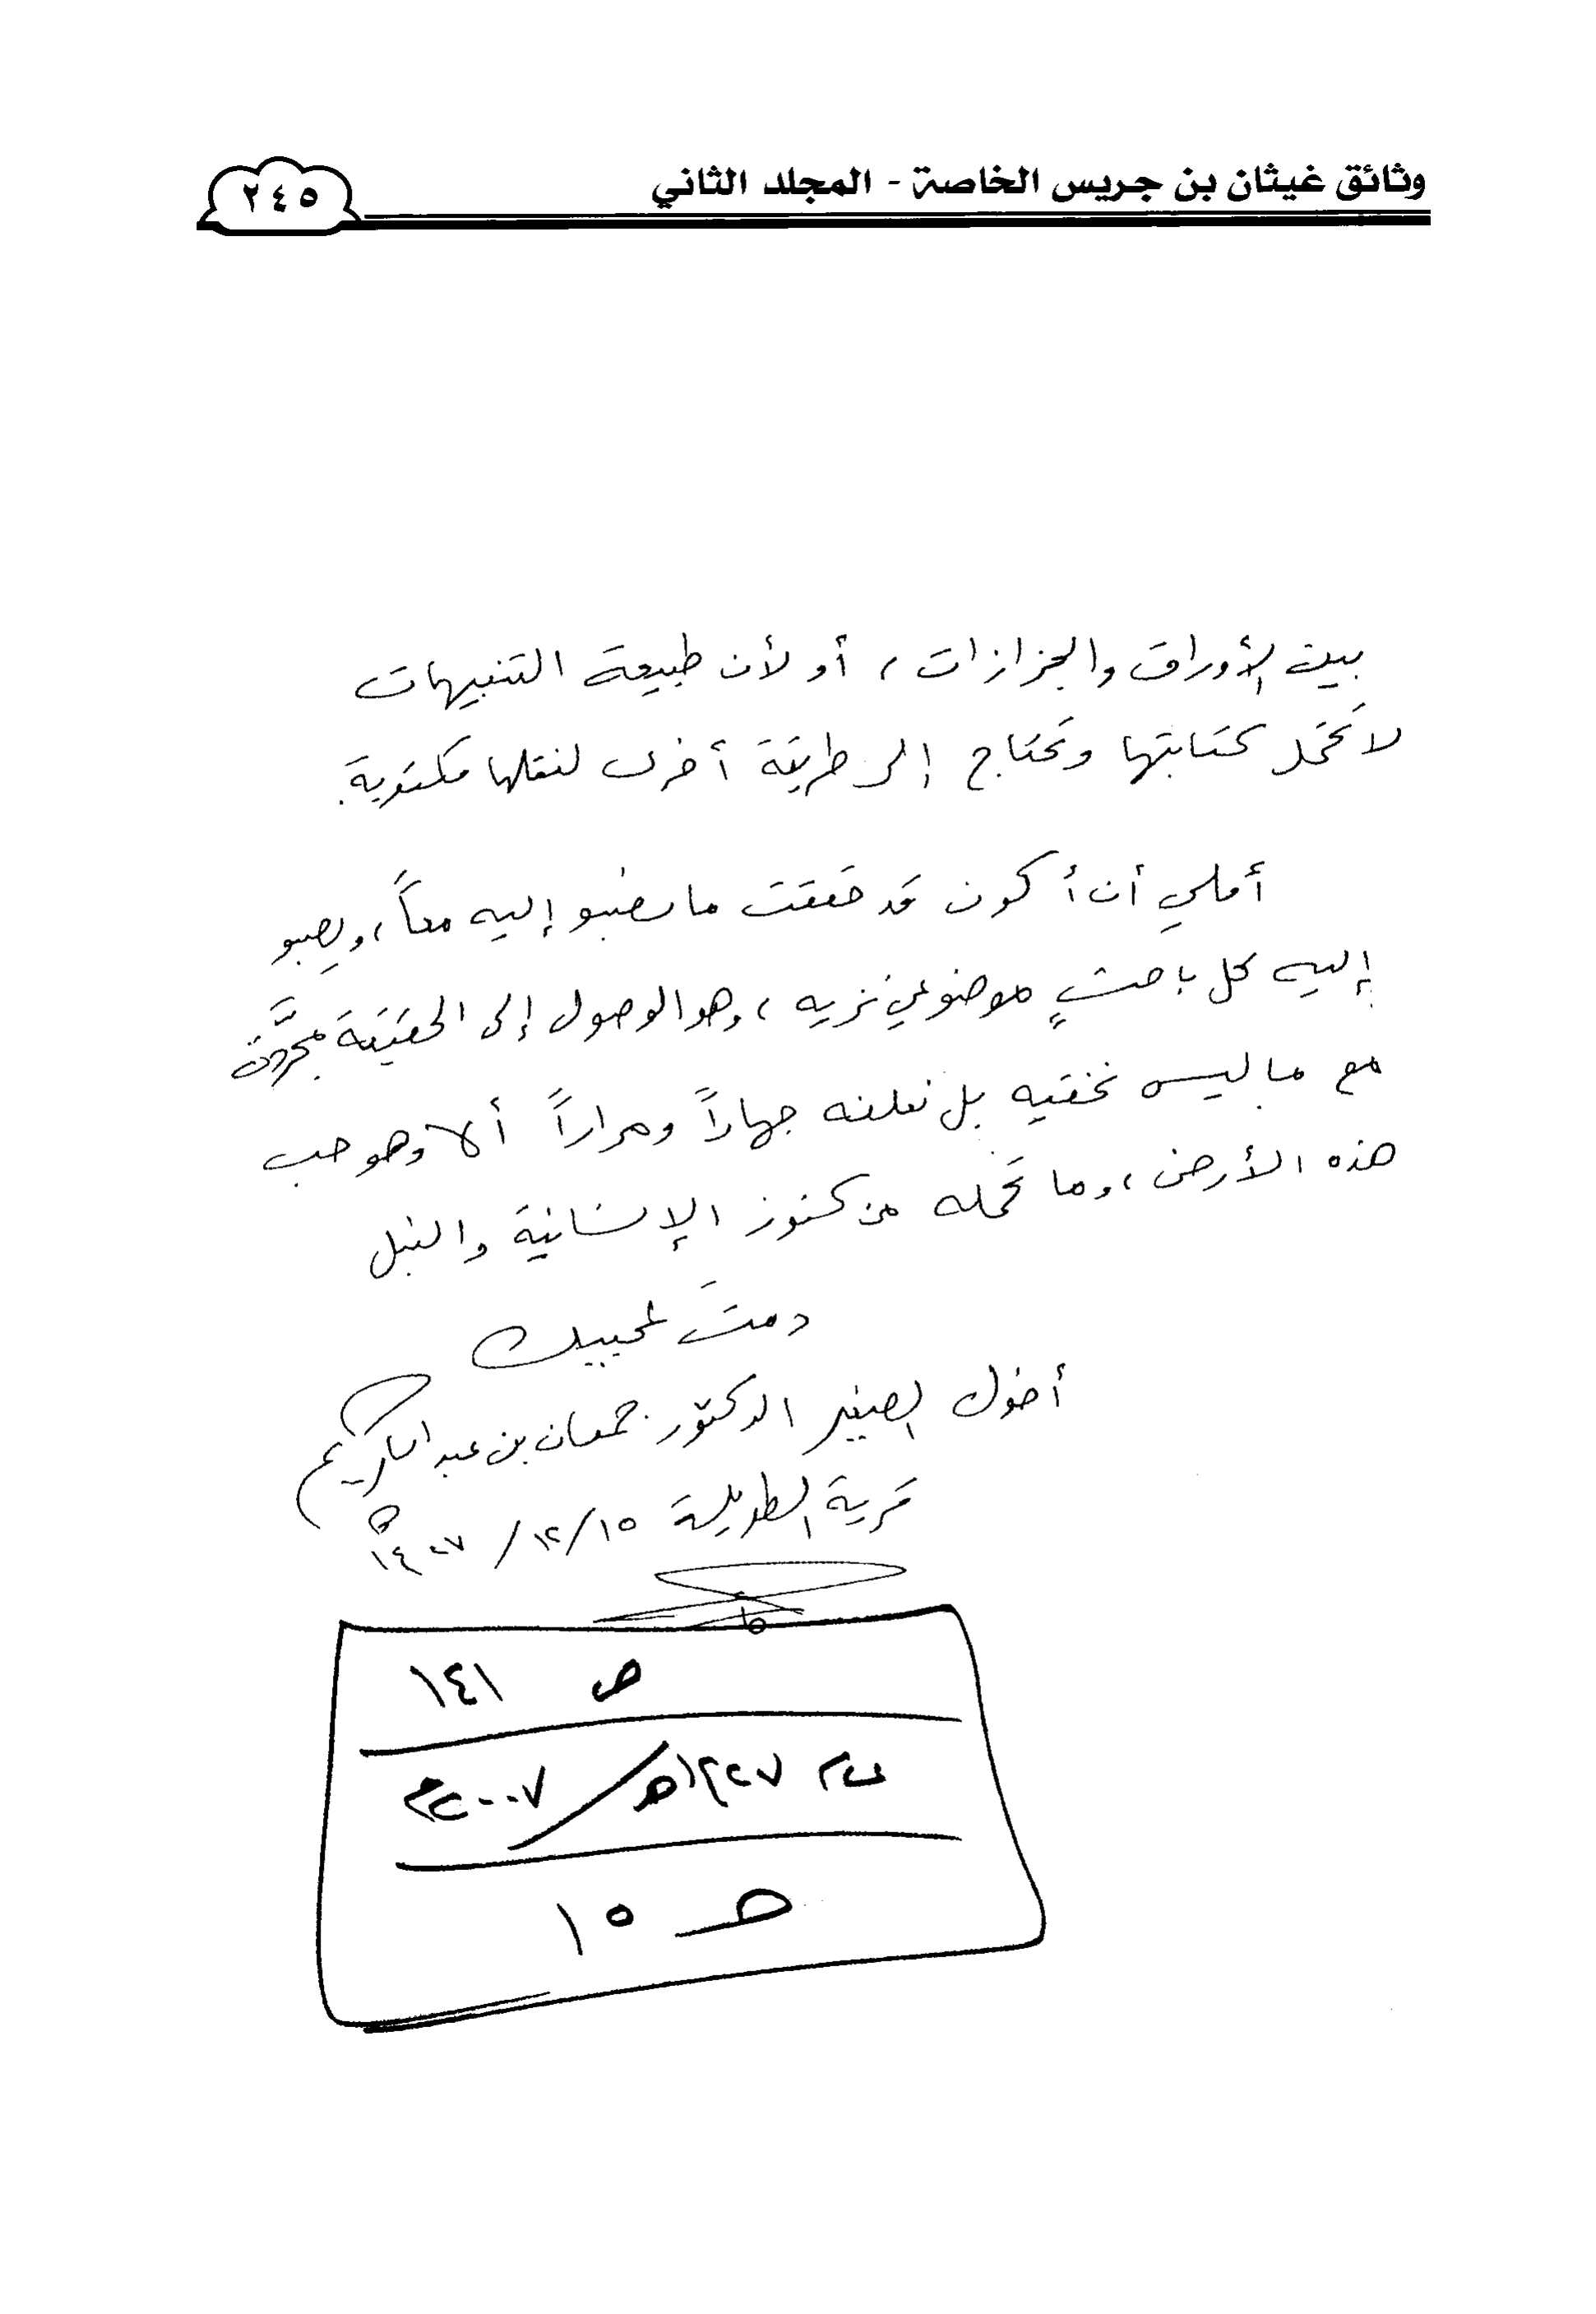 وثائق غيثان بن جريس الخاصة - المجلد الثاني
٢٤٥
بين الأوراق والجزازات، أو لأن طبيعة التنبيهات
لا تحتمل كتابتها وتحتاج إلى طريقة أخرى لنقلها مكتوبة.
أملي أن أكون قد حققت ما نصبو إليه معاً، ويصبو
إليه كل باحثٍ موضوعي نزيه، وهو الوصول إلى الحقيقة مجرَّدة
مع ما ليس نخفيه بل نعلنه جهاراً ومراراً ألا وهو حب
هذه الأرض، وما تحمله من كنوز الإنسانية والنبل
دمتَ لمحبيك
أخوك الصغير الدكتور جمعان بن عبد الكريم
قرية الطويلة ١٥/١٢/١٤٢٧هـ
ص ١٤١
١٤٢٧هـ/٢٠٠٧م
صـ ١٥